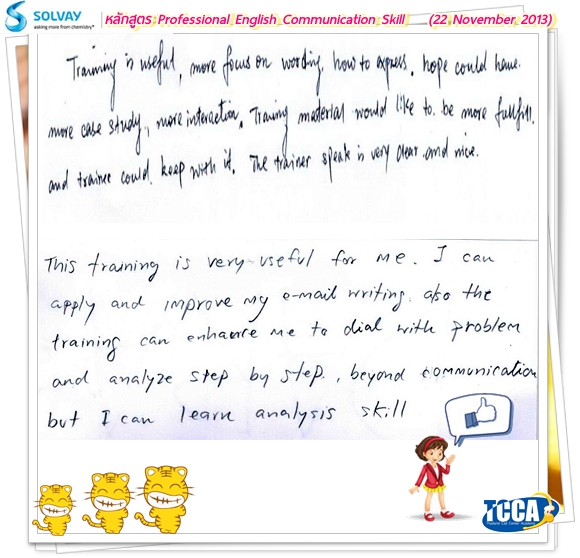 SOLVAY
asking more from chemistry®
หลักสูตร : Professional English Communication Skill (22 November 2013)
Training is useful, more focus on wording, how to express, hope could have
more case study, more interaction, Training material would like to be more fullfill,
and trainee could keep with it. The trainer speak is very clear and nice.
This training is very useful for me. I can
apply and improve my e-mail writing. also the
training can enhance me to dial with problem
and analyze step by step., beyond communication
but I can learn analysis skill
TCCA